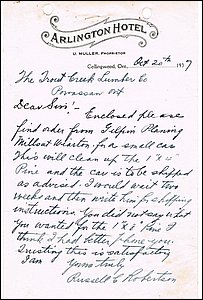 ARLINGTON HOTEL
U. MULLER, PROPRIETOR
Collingwood, Ont., Oct 20th 1937
The Trout Creek Lumber Co
Powassan Ont
Dear Sir! - Enclosed please
find order from Tilpin Planing
Mill at Wiarton for a small car
This will clean up the 1"x
Pine and the car is to be shipped
as advised. I would wait two
weeks and then write him for shipping
instructions. You did not say what
you wanted for the 1"x Pine I
think I had better phone you.
Trusting this is satisfactory
I am Yours truly
Russell C Robertson